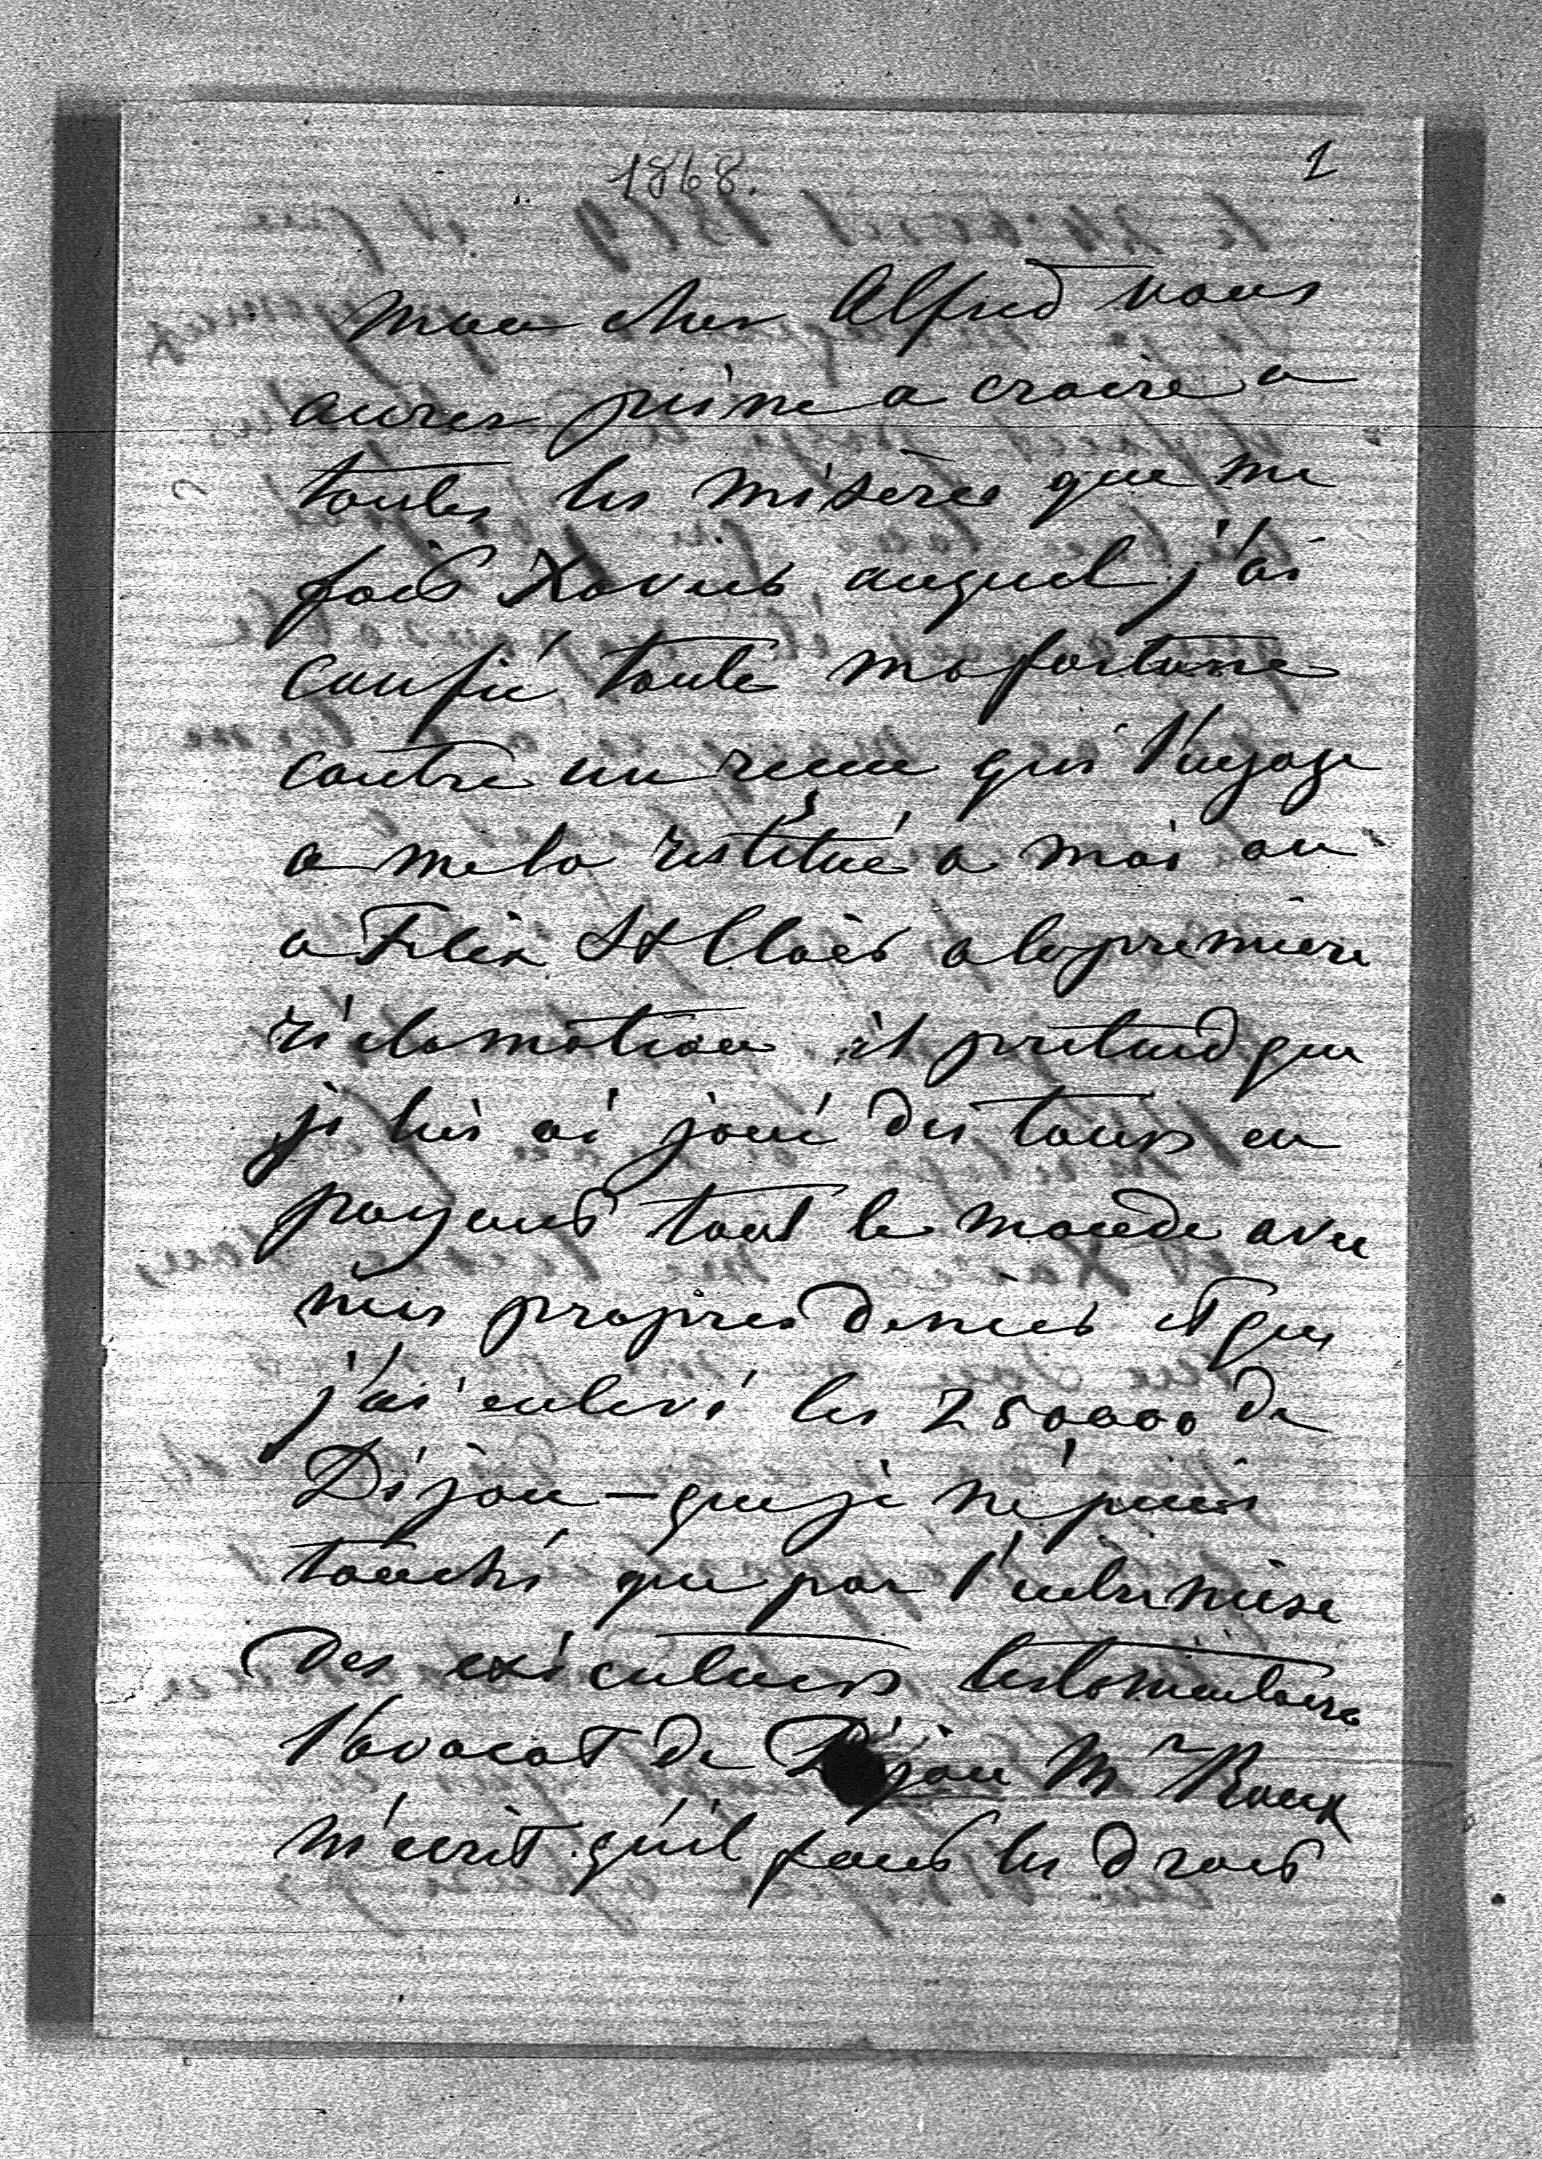 1868.
1
mon cher Alfred vous
aurez peine a croire a
toutes les misères que me
fait Xavier auquel j'ai
confié toute ma fortune
contre un recu qui l'engage
a me la restitué a moi ou
a Felix St Claès a la première
réclamation il pretend que
je lui ai joué des tours en
payant tout le monde avec
mes propres deniers et que
j'ai enlevé les 250000 de
Dijon - que je ne puis
touché que par l'entremise
des exécuteurs testamentaire
l'avocat de Dijon Mr Roux
m'ecrit qu'il faut les droits